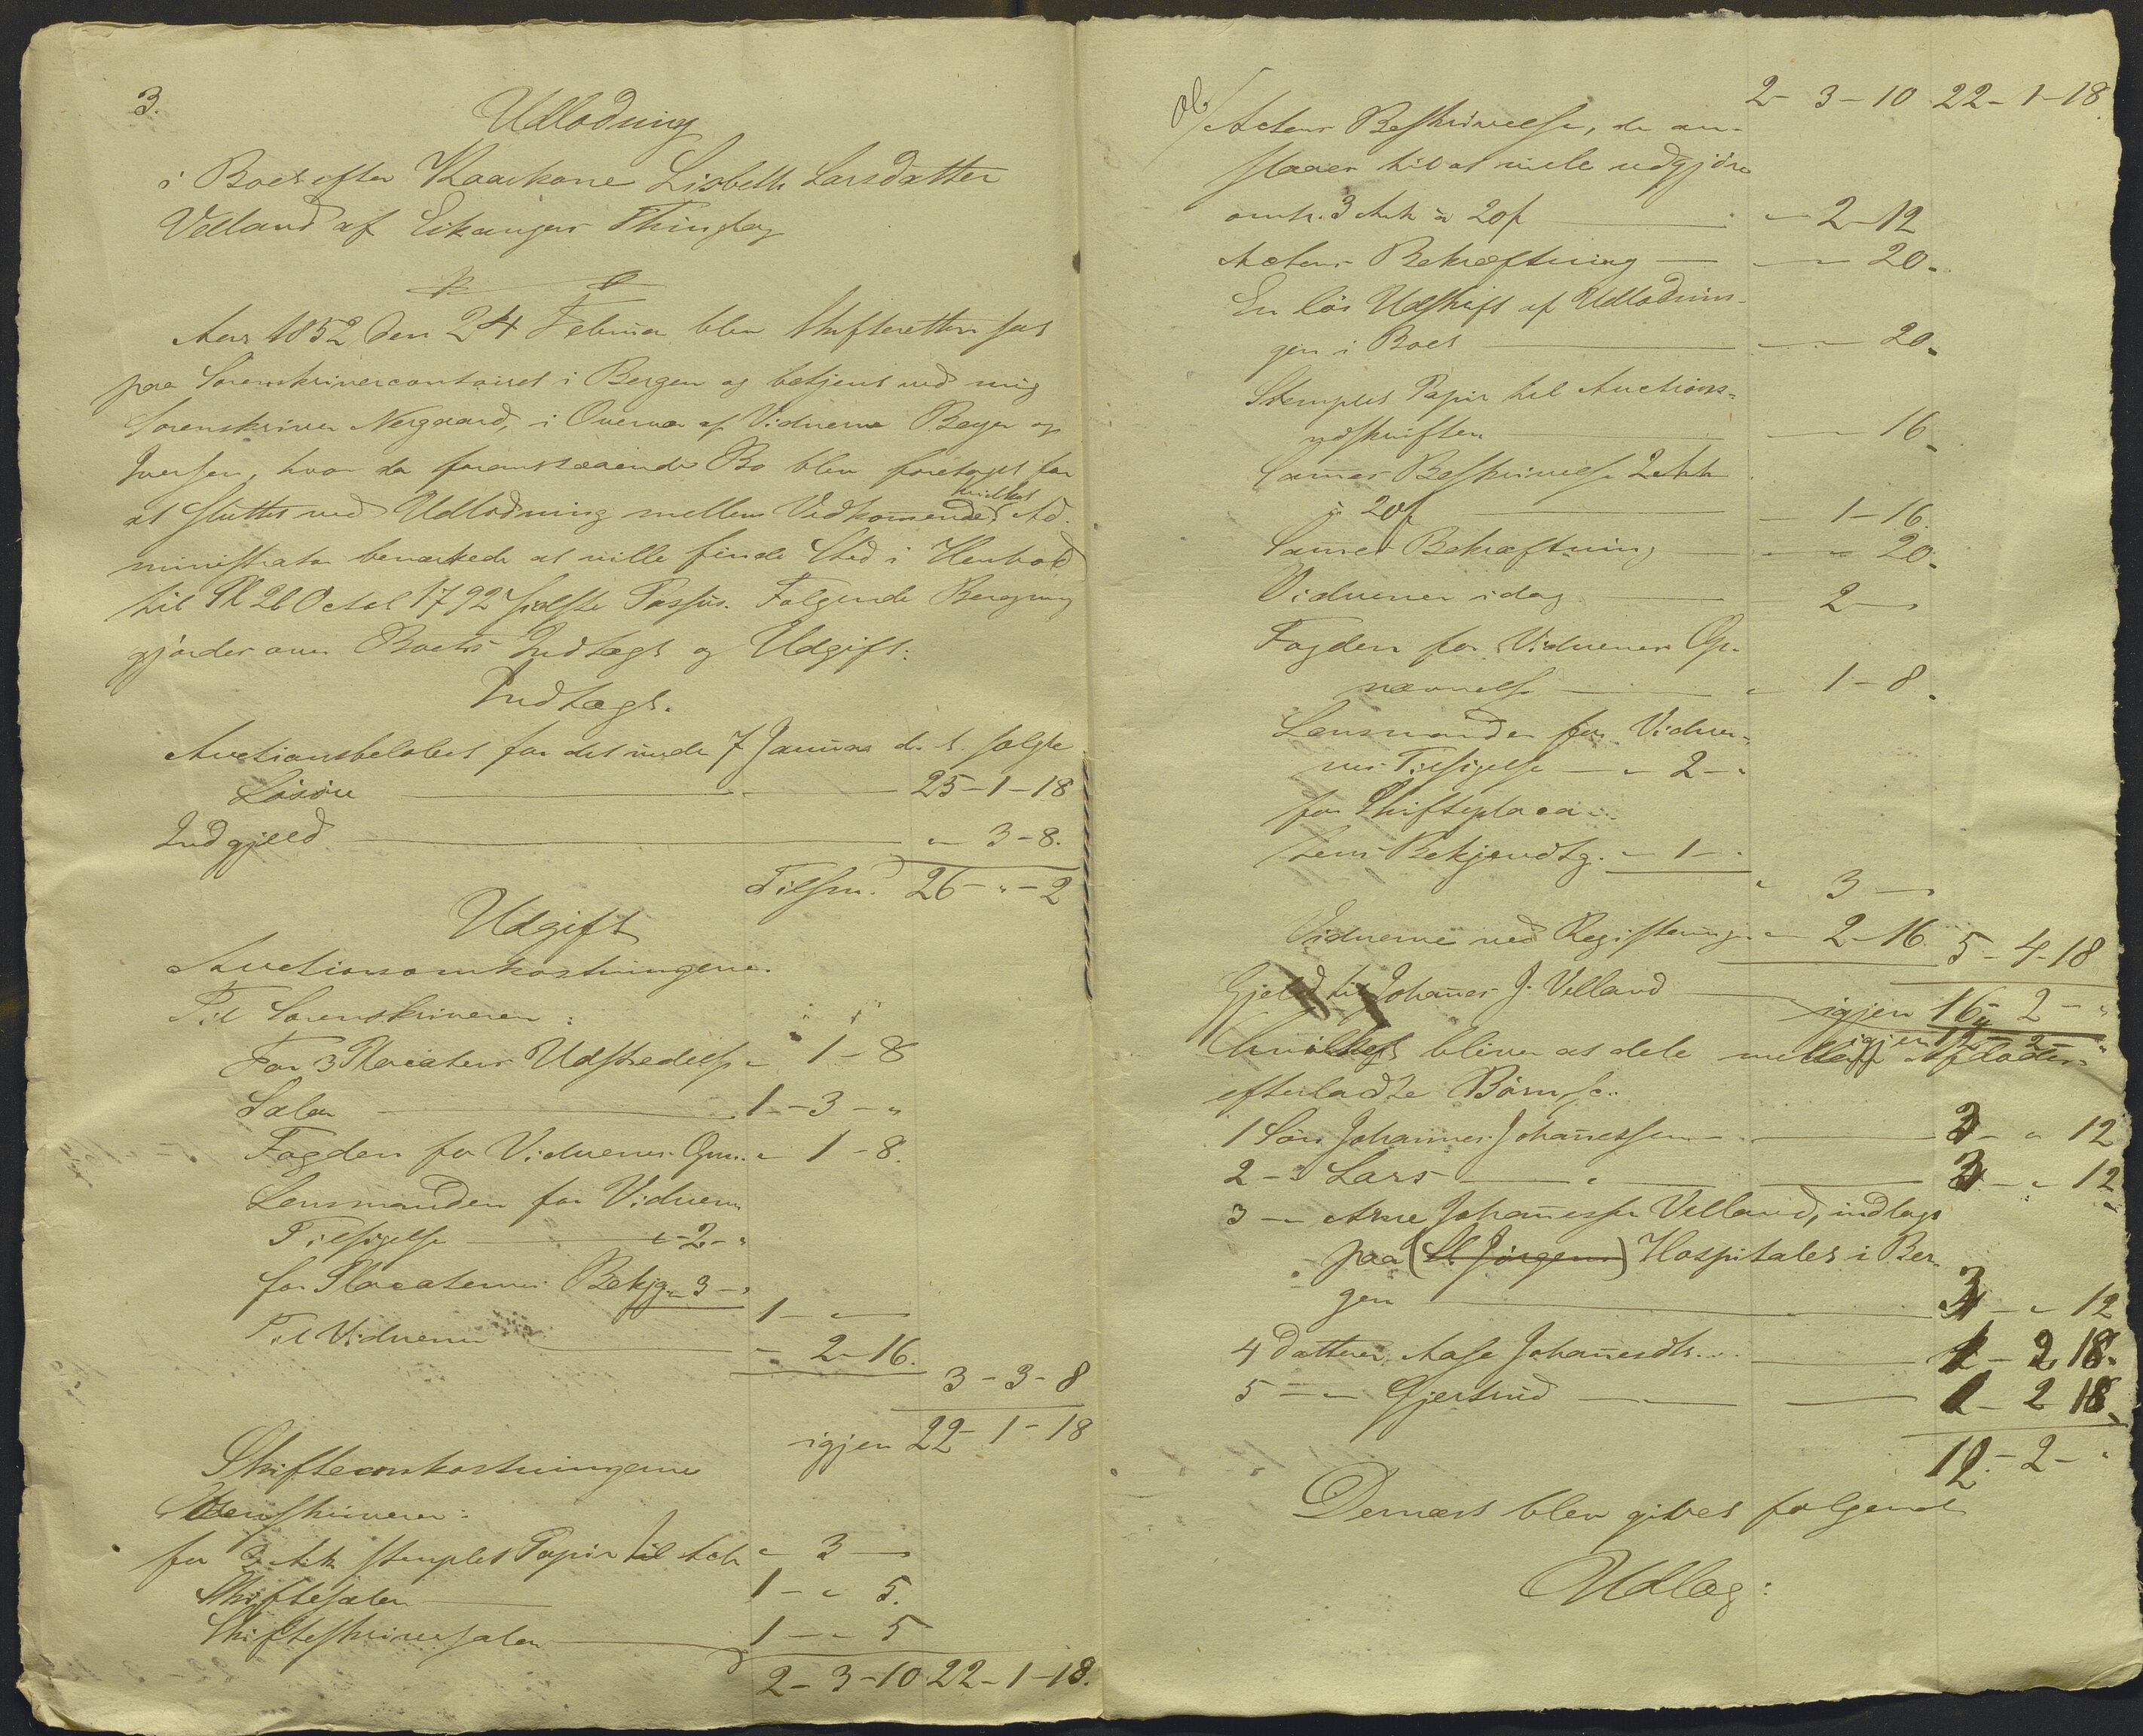 3.
Udlodning
i Boet efter Kaarkone Lisbeth Larsdatter
Velland af Eikanger Thinglag
Aar 1852 den 24 Februar blev Skifteretten sat
paa Sorenskrivercontoiret i Bergen og betjent ved mig
Sorenskriver Nergaard, i Overvær af Vidnerne Beyer og
Iversen, hvor da foranstaaende Bo blev foretaget for
at sluttes ved Udlodning mellem Vedkommende, hvilket Ad-
ministrator bemærkede at ville finde Sted i Henhold
til Pl 26 Octob 1792 sidste Passus. Følgende Beregning
gjordes over Boets Indtægt og Udgift:
Indtægt.
Auctionsbeløbet for det under 7 Januar d. A. solgte
Løsøre 25-1-18
Indgjeld " 3-8.
Tilsm. 26-"-2
Udgift
Auctionsomkostningerne.
Til Sorenskriveren:
For 3 Placaters Udstedelse " 1-8
Salær 1-3-"
Fogden for Vidners Opn. " 1-8.
Lensmanden for Vidners
Tilsigelse " 2-"
for Placaternes Bekjg. " 3-"
1-"-
Til Vidnerne - 2-16.
3-3-8
igjen 22-1-18
Skifteomkostningerne
Sorenskriveren:
for 2 Ark stemplet Papir til Act " 3-
Skiftesalær 1-" 5.
Skifteskriversalær 1-" 5
2-3-10 22-1-18.
2-3-10 22-1-18
Actens Beskrivelse, der an-
slaaes til at ville udgjøre
omtr. 3 Ark à 20ß - 2-12
Actens Bekræftning - 20.
En løs Udskrift af Udlodnin-
gen i Boet - 20.
Stemplet Papir til Auctions-
udskriften - 16.
Sammes Beskrivelse 2 Ark
à 20ß - 1-16.
Sammes Bekræftning - " 20.
Vidnerne idag 2-
Fogden for Vidners Op-
nævnelse " 1-8.
Lensmanden for Vidner-
nes Tilsigelse " 2-"
for Skifteplaca-
tens Bekjendtg. " 1-"
" 3-
Vidnerne ved Registering " 2-16. 5-4-18
igjen 16-2-"
Gjeld til Johannes J. Velland 4
igjen 12-2-"
hvilket bliver at dele mellem Afdødes
efterladte Børn, sc.
1 Søn Johannes Johannessen 3-" 12
2 -" Lars " 3-" 12
3 -" Arne Johannessen Velland, indlagt
paa (St Jørgens) Hospitalet i Ber-
gen 3-" 12
4 Datteren Aase Johannesdtr. 1-2 18.
5 -" Gjertrud 1-2 18.
12-2-"
Dernæst blev givet følgende
Udlæg: